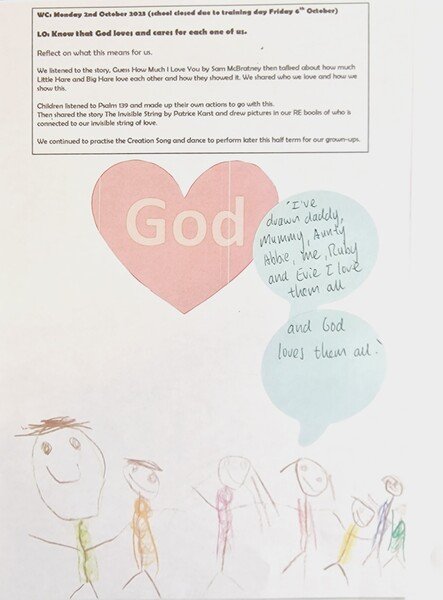 WC: Monday 2nd October 2023 (school closed due to training day Friday 6th October)
LO: Know that God loves and cares for each one of us.
Reflect on what this means for us.
We listened to the story, Guess How Much I Love You by Sam McBratney then talked about how much
Little Hare and Big Hare love each other and how they showed it. We shared who we love and how we
show this.
Children listened to Psalm 139 and made up their own actions to go with this.
Then shared the story The Invisible String by Patrice Karst and drew pictures in our RE books of who is
connected to our invisible string of love.
We continued to practise the Creation Song and dance to perform later this half term for our grown-ups.
God
"I've
drawn daddy,
Mummy, Aunty
Abbie, me, Ruby
and Evie I love
them all
and God
loves them all."